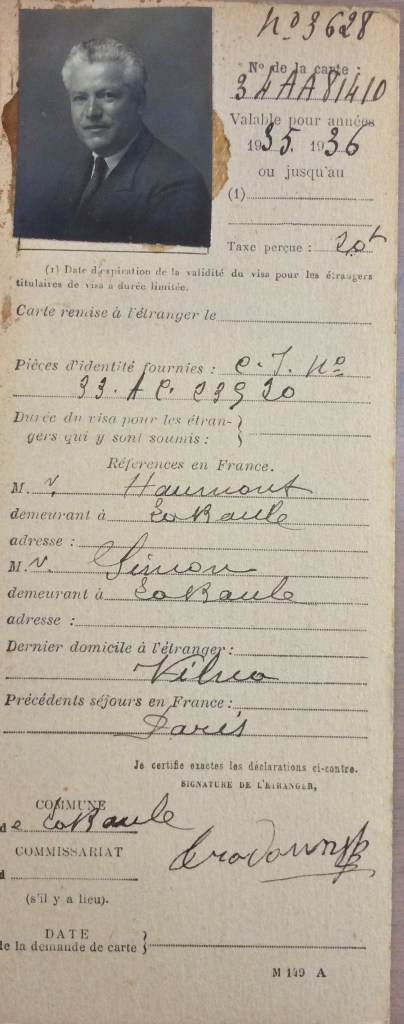 Nº 3628
Nº de la carte :
34AA81410
Valable pour années
1935. 1936
ou jusqu'au
(1)
Taxe perçue : 20f
(1) Date d'expiration de la validité du visa pour les étrangers
titulaires de visa à durée limitée.
Carte remise à l'étranger le
Pièces d'identité fournies : C. I. Nº
33. AC. 23920
Durée du visa pour les étran-
gers qui y sont soumis :
Références en France.
M. v, Haumont
demeurant à La Baule
adresse :
M. v. Simon
demeurant à La Baule
adresse :
Dernier domicile à l'étranger :
Vilna
Précédents séjours en France :
Paris
Je certifie exactes les déclarations ci-contre.
SIGNATURE DE L'ÉTRANGER,
COMMUNE
de La Baule
COMMISSARIAT
d
(s'il y a lieu).
DATE
de la demande de carte
M 149 A